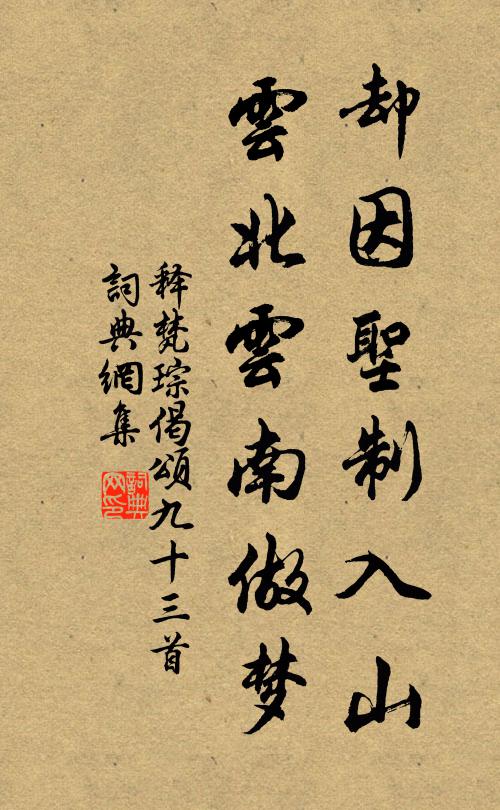 却因聖制入山
雲北雲南做梦
释梵琮偈頌九十三首
詞典網集
詞典網印